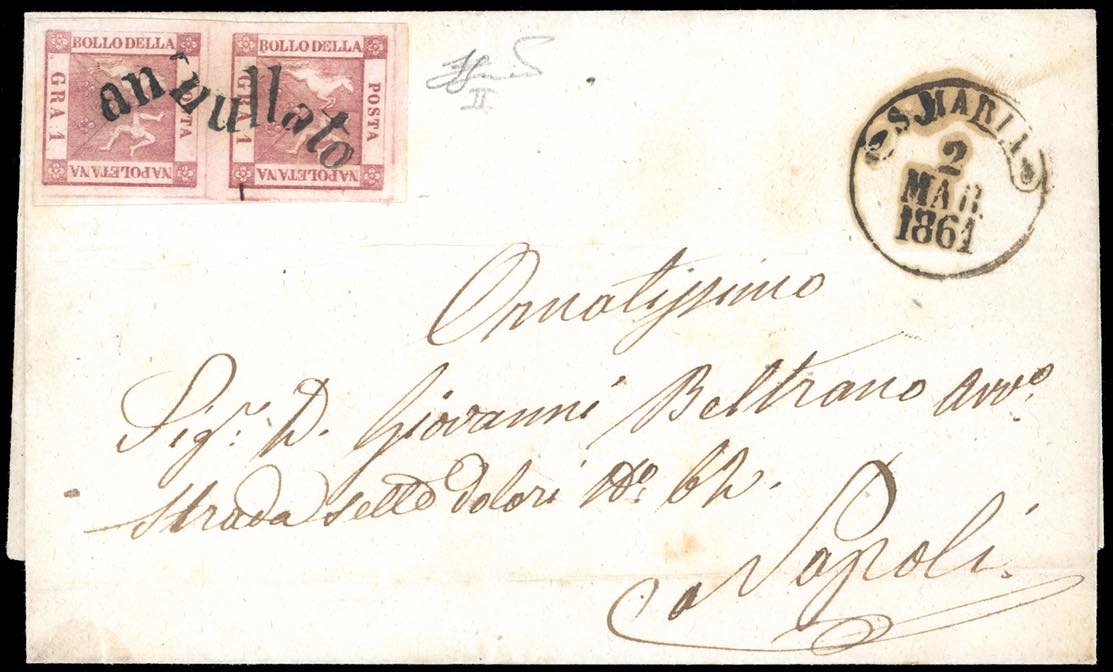 BOLLO DELLA
POSTA
NAPOLETANA
GRA 1
BOLLO DELLA
POSTA
NAPOLETANA
GRA 1
annullato
II
S. MARIA
2
MAR
1861
Ornatissimo
Sig.r D. Giovanni Beltrano Avvo.
Strada sette dolori No. 62.
a Napoli.